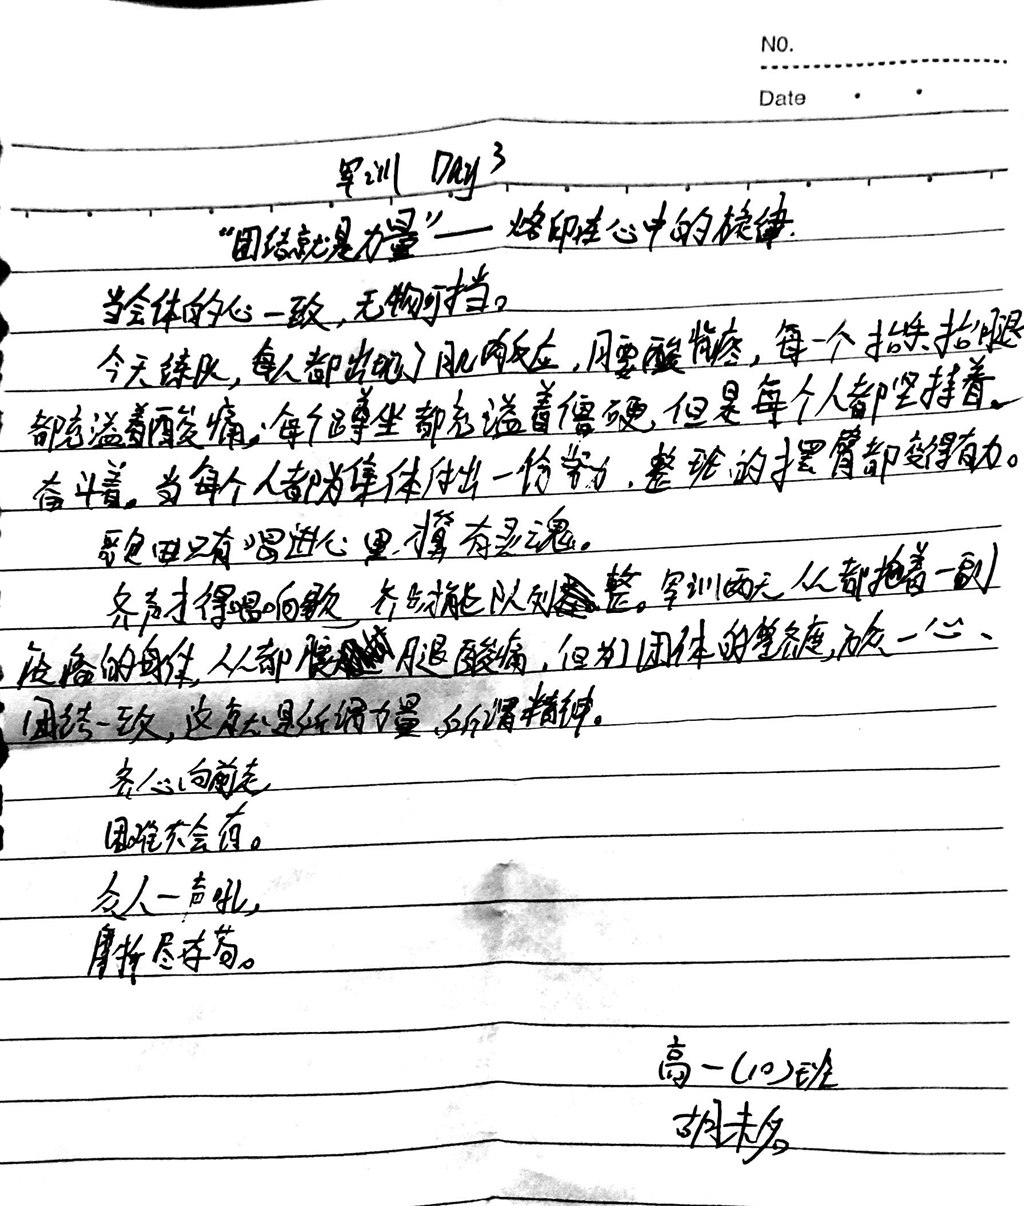 NO.
Date
军训 Day 3
“团结就是力量”——烙印在心中的旋律
当全体的心一致,无物可挡。
今天练队,每人都出现了肌肉反应,腰酸背疼,每一个抬头抬腿
都充溢着酸痛,每个蹲坐都充溢着僵硬,但是每个人都坚持着。
奋斗着。当每个人都为集体付出一份努力,整班的摆臂都变得有力。
歌曲只有唱进心里,才算有灵魂。
齐声才得唱响歌,齐步才能队列整。军训两天,人人都拖着一副
疲痛的身体,人人都腰腿酸痛,但为了团体的整齐度,万众一心、
团结一致,这就是所谓力量,所谓精神。
齐心向前走
困难不会有。
众人一声吼,
摩拆尽
高一(10)班
胡未名